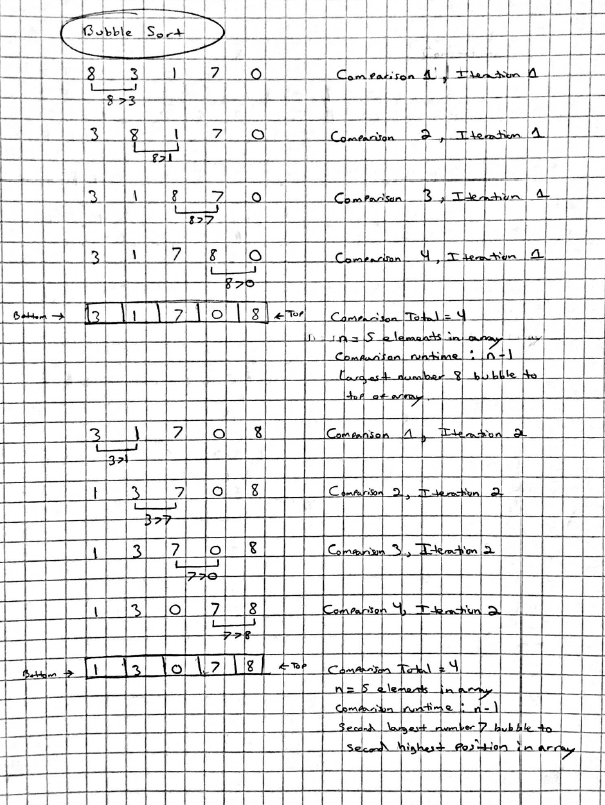 Bubble Sort
8 3 1 7 0 Comparison 1, Iteration 1
8>3
3 8 1 7 0 Comparison 2, Iteration 1
8>1
3 1 8 7 0 Comparison 3, Iteration 1
8>7
3 1 7 8 0 Comparison 4, Iteration 1
8>0
Bottom → 3 1 7 0 8 ← Top Comparison Total = 4
n = 5 elements in array
Comparison runtime : n-1
Largest number 8 bubble to
top of array.
3 1 7 0 8 Comparison 1, Iteration 2
3>1
1 3 7 0 8 Comparison 2, Iteration 2
3>7
1 3 7 0 8 Comparison 3, Iteration 2
7>0
1 3 0 7 8 Comparison 4, Iteration 2
7>8
Bottom → 1 3 0 7 8 ← Top Comparison Total = 4
n = 5 elements in array
Comparison runtime : n-1
Second largest number 7 bubble to
second highest position in array